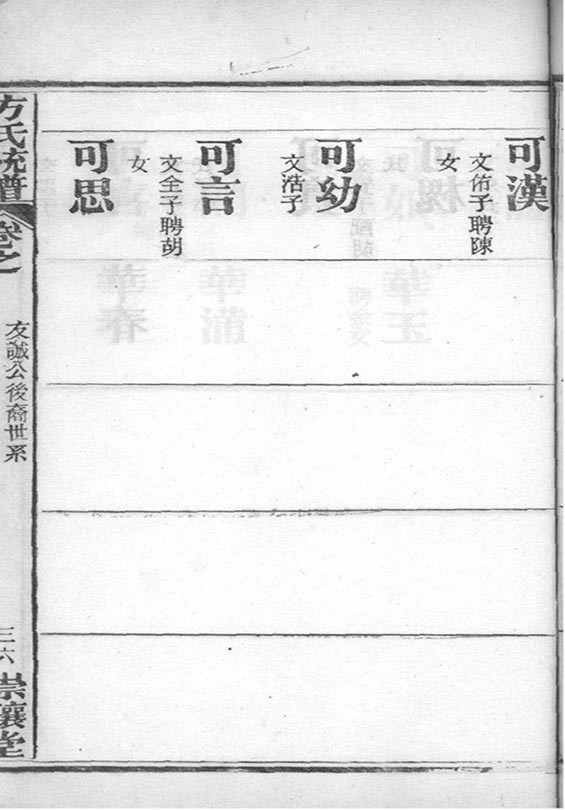 可漢
文佑子聘陳
女
可幼
文浩子
可言
文全子聘胡
女
可思
方氏統譜
卷之
友誠公後裔世系
三六
崇讓堂